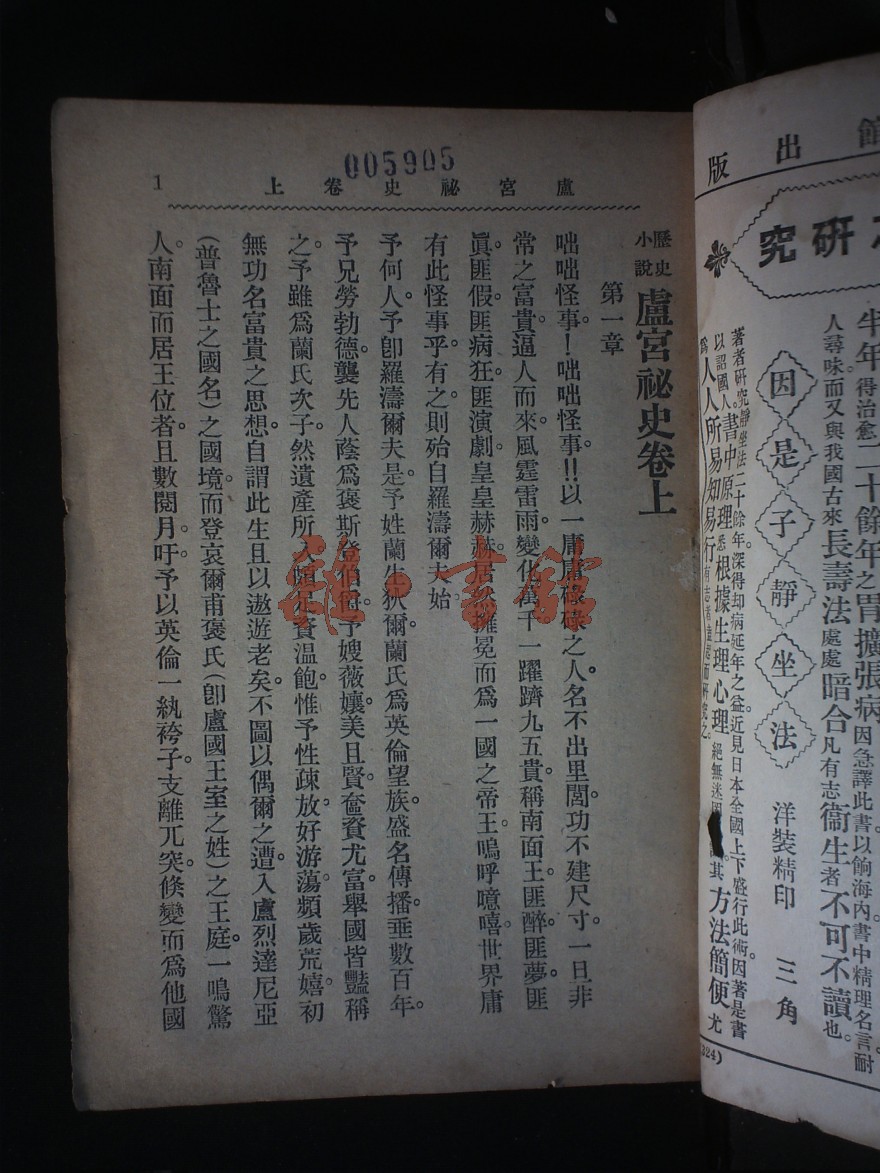 館出版
研究
半年得治愈二十餘年之胃擴張病因急譯此書以餉海內書中精理名言耐
人尋味而又與我國古來長壽法處處暗合凡有志衞生者不可不讀也。
因是子靜坐法
洋裝精印 三角
著者研究靜坐法二十餘年。深得却病延年之益近見日本全國上下盛行此術。因著是書
以詔國人。書中原理悉根據生理心理絕無迷其方法簡便尤
爲人人所易知易行有志者盍起而研究之。
(324)
盧宮祕史卷上
1
005905
歷史小說
盧宮祕史卷上
第一章
咄咄怪事!咄咄怪事!!以一庸庸碌碌之人。名不出里閭。功不建尺寸。一旦非
常之富貴。逼人而來。風霆雷雨。變化萬千。一躍躋九五貴。稱南面王。匪醉。匪夢。匪
眞。匪假。匪病狂。匪演劇。皇皇赫赫。居然擁冕而爲一國之帝王。嗚呼噫嘻。世界庸
有此怪事乎。有之。則殆自羅濤爾夫始。
予何人。予卽羅濤爾夫是。予姓蘭生狄爾。蘭氏爲英倫望族。盛名傳播。垂數百年。
予兄勞勃德。襲先人蔭。爲褒斯登伯爵。予嫂薇孃。美且賢。奩資尤富。舉國皆豔稱
之。予雖爲蘭氏次子。然遺產所入。頗足資温飽。惟予性疎放。好游蕩。頻歲荒嬉。初
無功名富貴之思想。自謂此生且以遨遊老矣。不圖以偶爾之遭。入盧烈達尼亞
(普魯士之國名)之國境。而登哀爾甫褒氏(卽盧國王室之姓)之王庭。一鳴驚
人。南面而居王位者。且數閱月。吁。予以英倫一紈袴子。支離兀突。倐變而爲他國
雜·書館